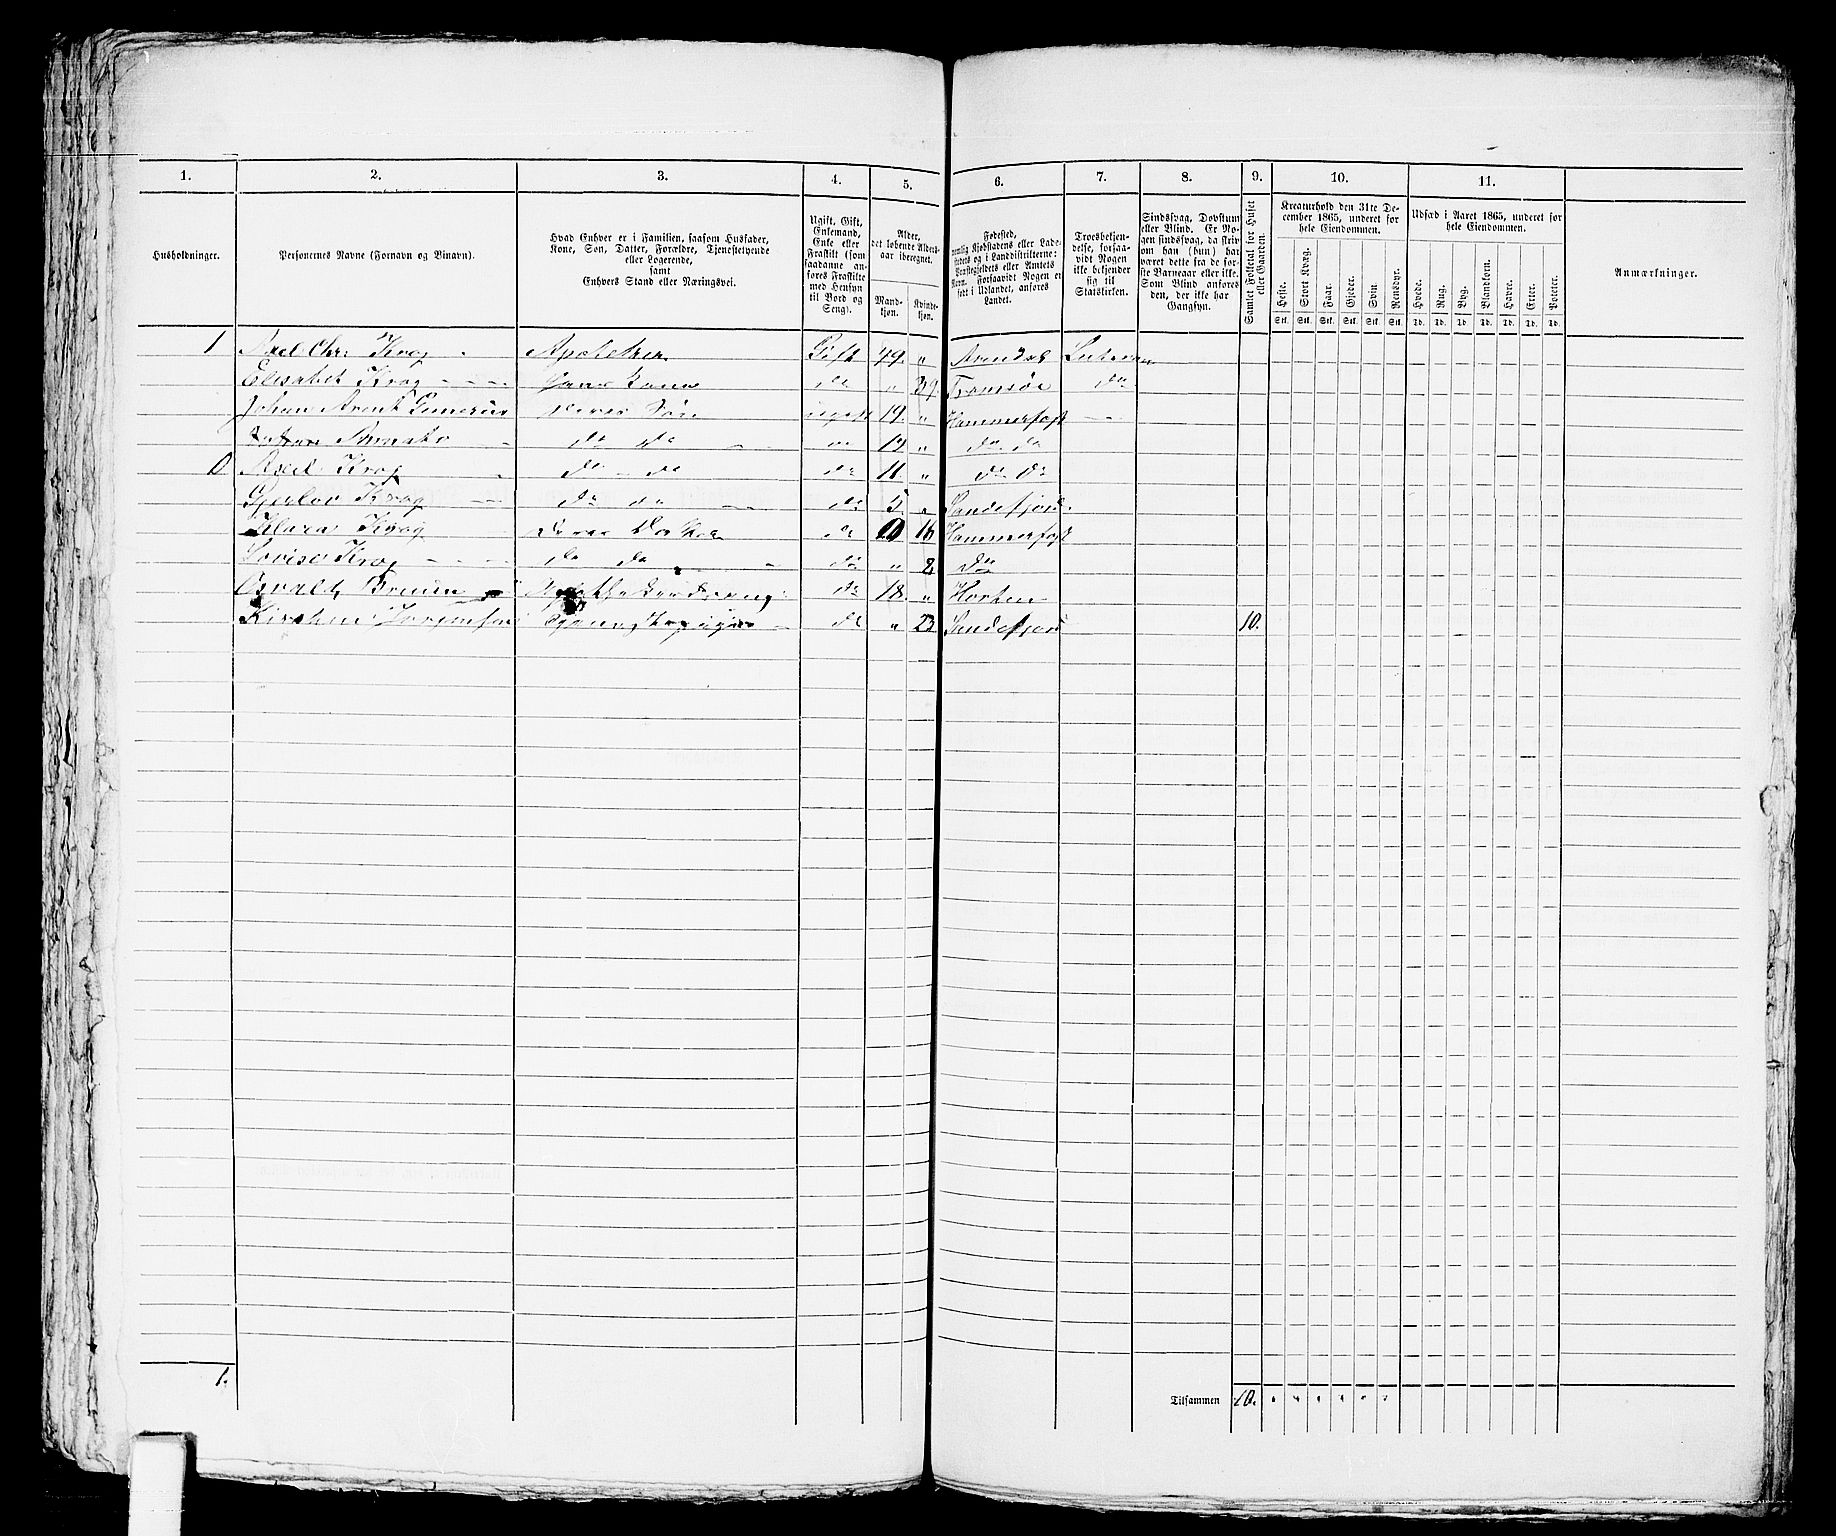 1. 2. 3. 4. 5. 6. 7. 8. 9. 10. 11.
Husholdninger.
Personernes Navne (Fornavn og Tilnavn).
Hvad Enhver er i Familien, saasom Husfader,
Kone, Søn, Datter, Forældre, Tjenestetyende
eller Logerende,
samt
Enhvers Stand eller Næringsvei.
Ugift, Gift,
Enkemand,
Enke eller
Fraskilt (som
saadanne an-
føres Fraskilte
med Hensyn
til Bord og
Seng).
Alder,
det løbende Alders-
aar iberegnet.
Mand-
kjøn.
Kvinde-
kjøn.
Fødested,
nemlig Kjøbstadens eller Lade-
stedets og i Landdistrikterne:
Præstegjeldets eller Amtets
Navn. Forsaavidt Nogen er
født i Udlandet, anføres
Landet.
Troesbekjen-
delse, forsaa-
vidt Nogen
ikke bekjender
sig til
Statskirken.
Sindssvag, Døvstum
eller Blind. Er No-
gen sindssvag, da skriv
om han (hun) har
været dette fra de før-
ste Barneaar eller ikke.
Som Blind anføres
den, der ikke har
Gangsyn.
Samlet Folketal for Huset
eller Gaarden.
Kreaturhold den 31te De-
cember 1865, underet for
hele Eiendommen.
Heste. Stort Kvæg. Faar. Gjeder. Svin. Rensdyr.
Stk. Stk. Stk. Stk. Stk. Stk.
Udsæd i Aaret 1865, underet for
hele Eiendommen.
Hvede. Rug. Byg. Blandkorn. Havre. Erter. Poteter.
Td. Td. Td. Td. Td. Td. Td.
Anmærkninger.
1 Axel Chr. Krog Apotheker Gift 49. " Arendal Luteran
Elisabet Krog hans Kone do " 39. Tromsøe do
Johan Arent deres Søn ugift 19. " Hammerfest
do do 12 " do do
0 Axel Krog do do do 11 " do do
Gjerlov Krog do do do 5. " Sandefjord
Klara Krog deres Dotter do 16 Hammerfest
Lovise Krog do do do " 2 do
Osvald Bruun do 18. " Horten
Kirsten Jørgensen Tjenestepige do " 23 Sandefjord 10.
1.
Tilsammen 10. " " " " " "